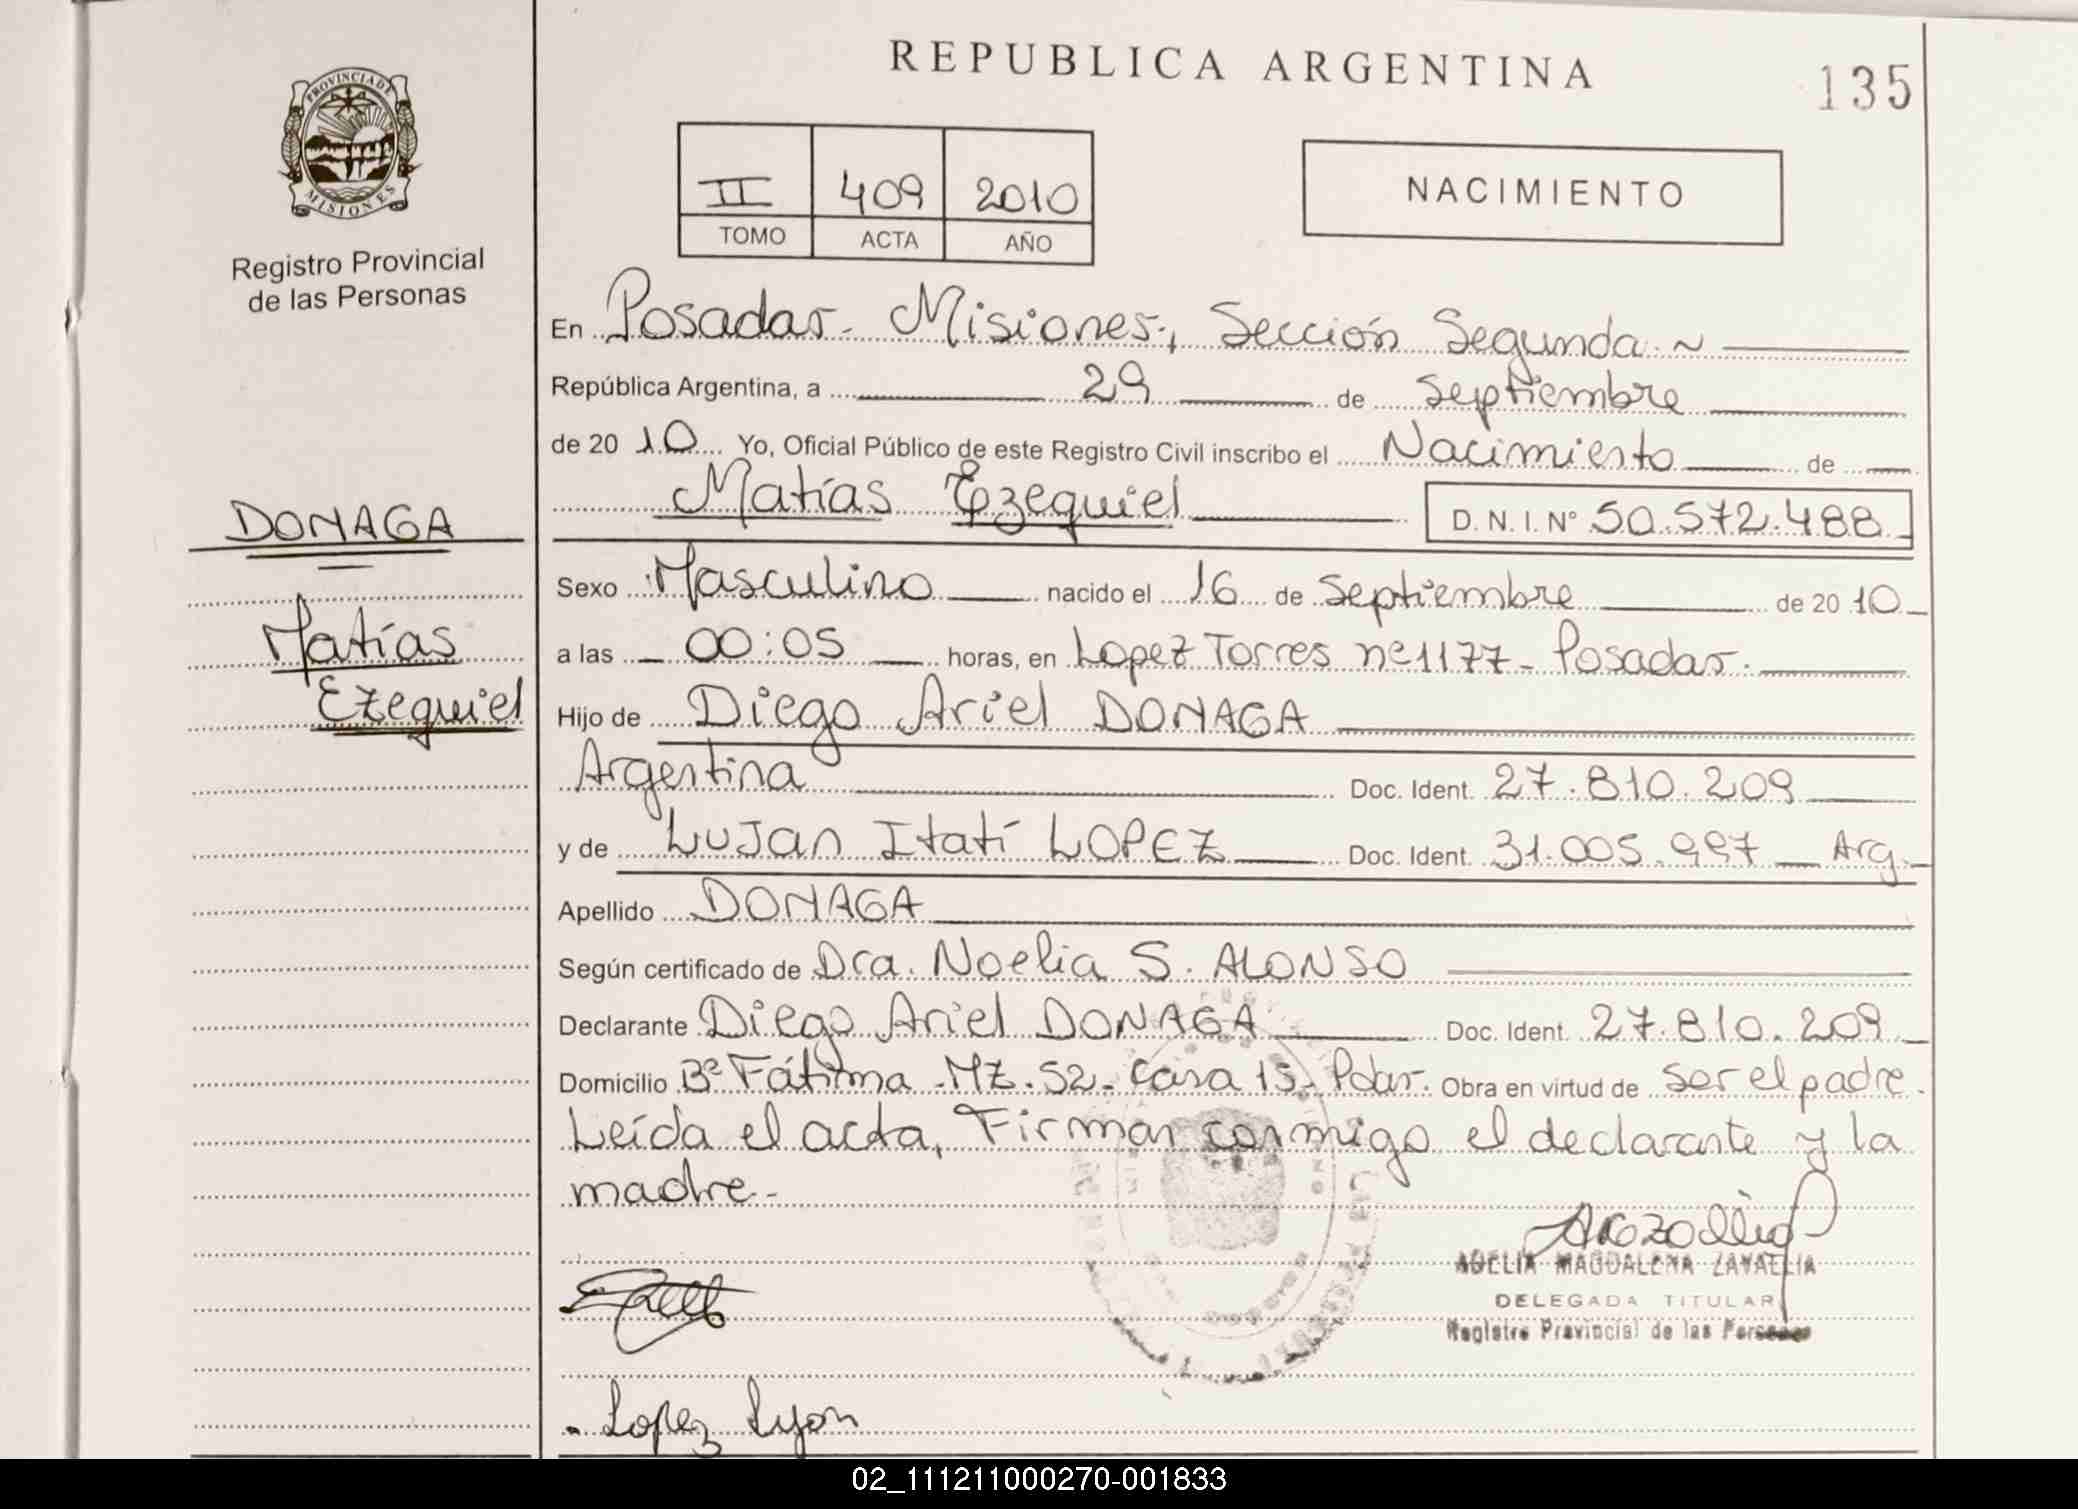 REPUBLICA ARGENTINA
135
PROVINCIA DE MISIONES
Registro Provincial
de las Personas
II 409 2010
TOMO ACTA AÑO
NACIMIENTO
En Posadas - Misiones, Sección Segunda ~
República Argentina, a 29 de Septiembre
de 20 10 Yo, Oficial Público de este Registro Civil inscribo el Nacimiento de
Matías Ezequiel D. N. I. Nº 50.572.488
DONAGA
Matías
Ezequiel
Sexo Masculino nacido el 16 de Septiembre de 20 10
a las 00:05 horas, en Lopez Torres nº 1177 - Posadas.
Hijo de Diego Ariel DONAGA
Argentina Doc. Ident. 27.810.209
y de Lujan Itatí LOPEZ Doc. Ident. 31.005.997 Arg.
Apellido DONAGA
Según certificado de Dra. Noelia S. ALONSO
Declarante Diego Ariel DONAGA Doc. Ident. 27.810.209
Domicilio Bº Fátima - MZ. 52 - Casa 15 - Pdas. Obra en virtud de ser el padre.
Leída el acta, Firman conmigo el declarante y la
madre.-
ADELIA MAGDALENA
DELEGADA TITULAR
Registro Provincial de las Personas
Lopez Lujan
02_111211000270-001833